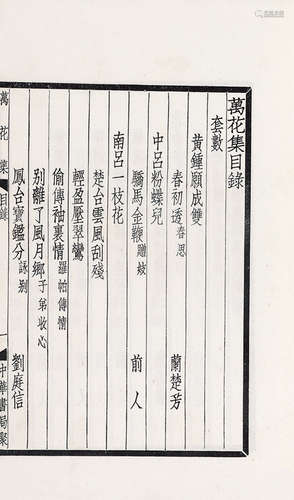 萬花集目錄
套數
黃鍾願成雙
春初透 春思 蘭楚芳
中呂粉蝶兒
驕馬金鞭 贈妓 前人
南呂一枝花
楚台雲風刮殘
輕盈壓翠鸞
偷傳袖裏情 羅帕傳情
别離了風月鄉 子弟收心
鳳台寶鑑分 詠别 劉庭信
萬花集 目錄 一 中華書局聚